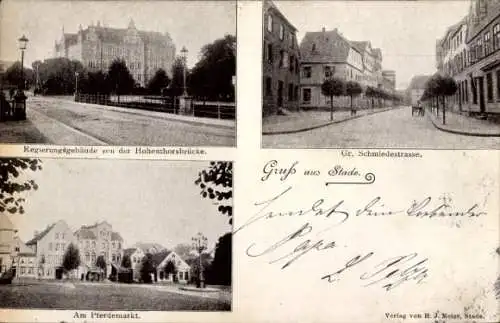 Regierungsgebäude von der Hohenthorsbrücke.
Gr. Schmiedestrasse.
Gruß aus Stade.
Sendet Dein
Papa.
Am Pferdemarkt.
Verlag von H. J. Meier, Stade.